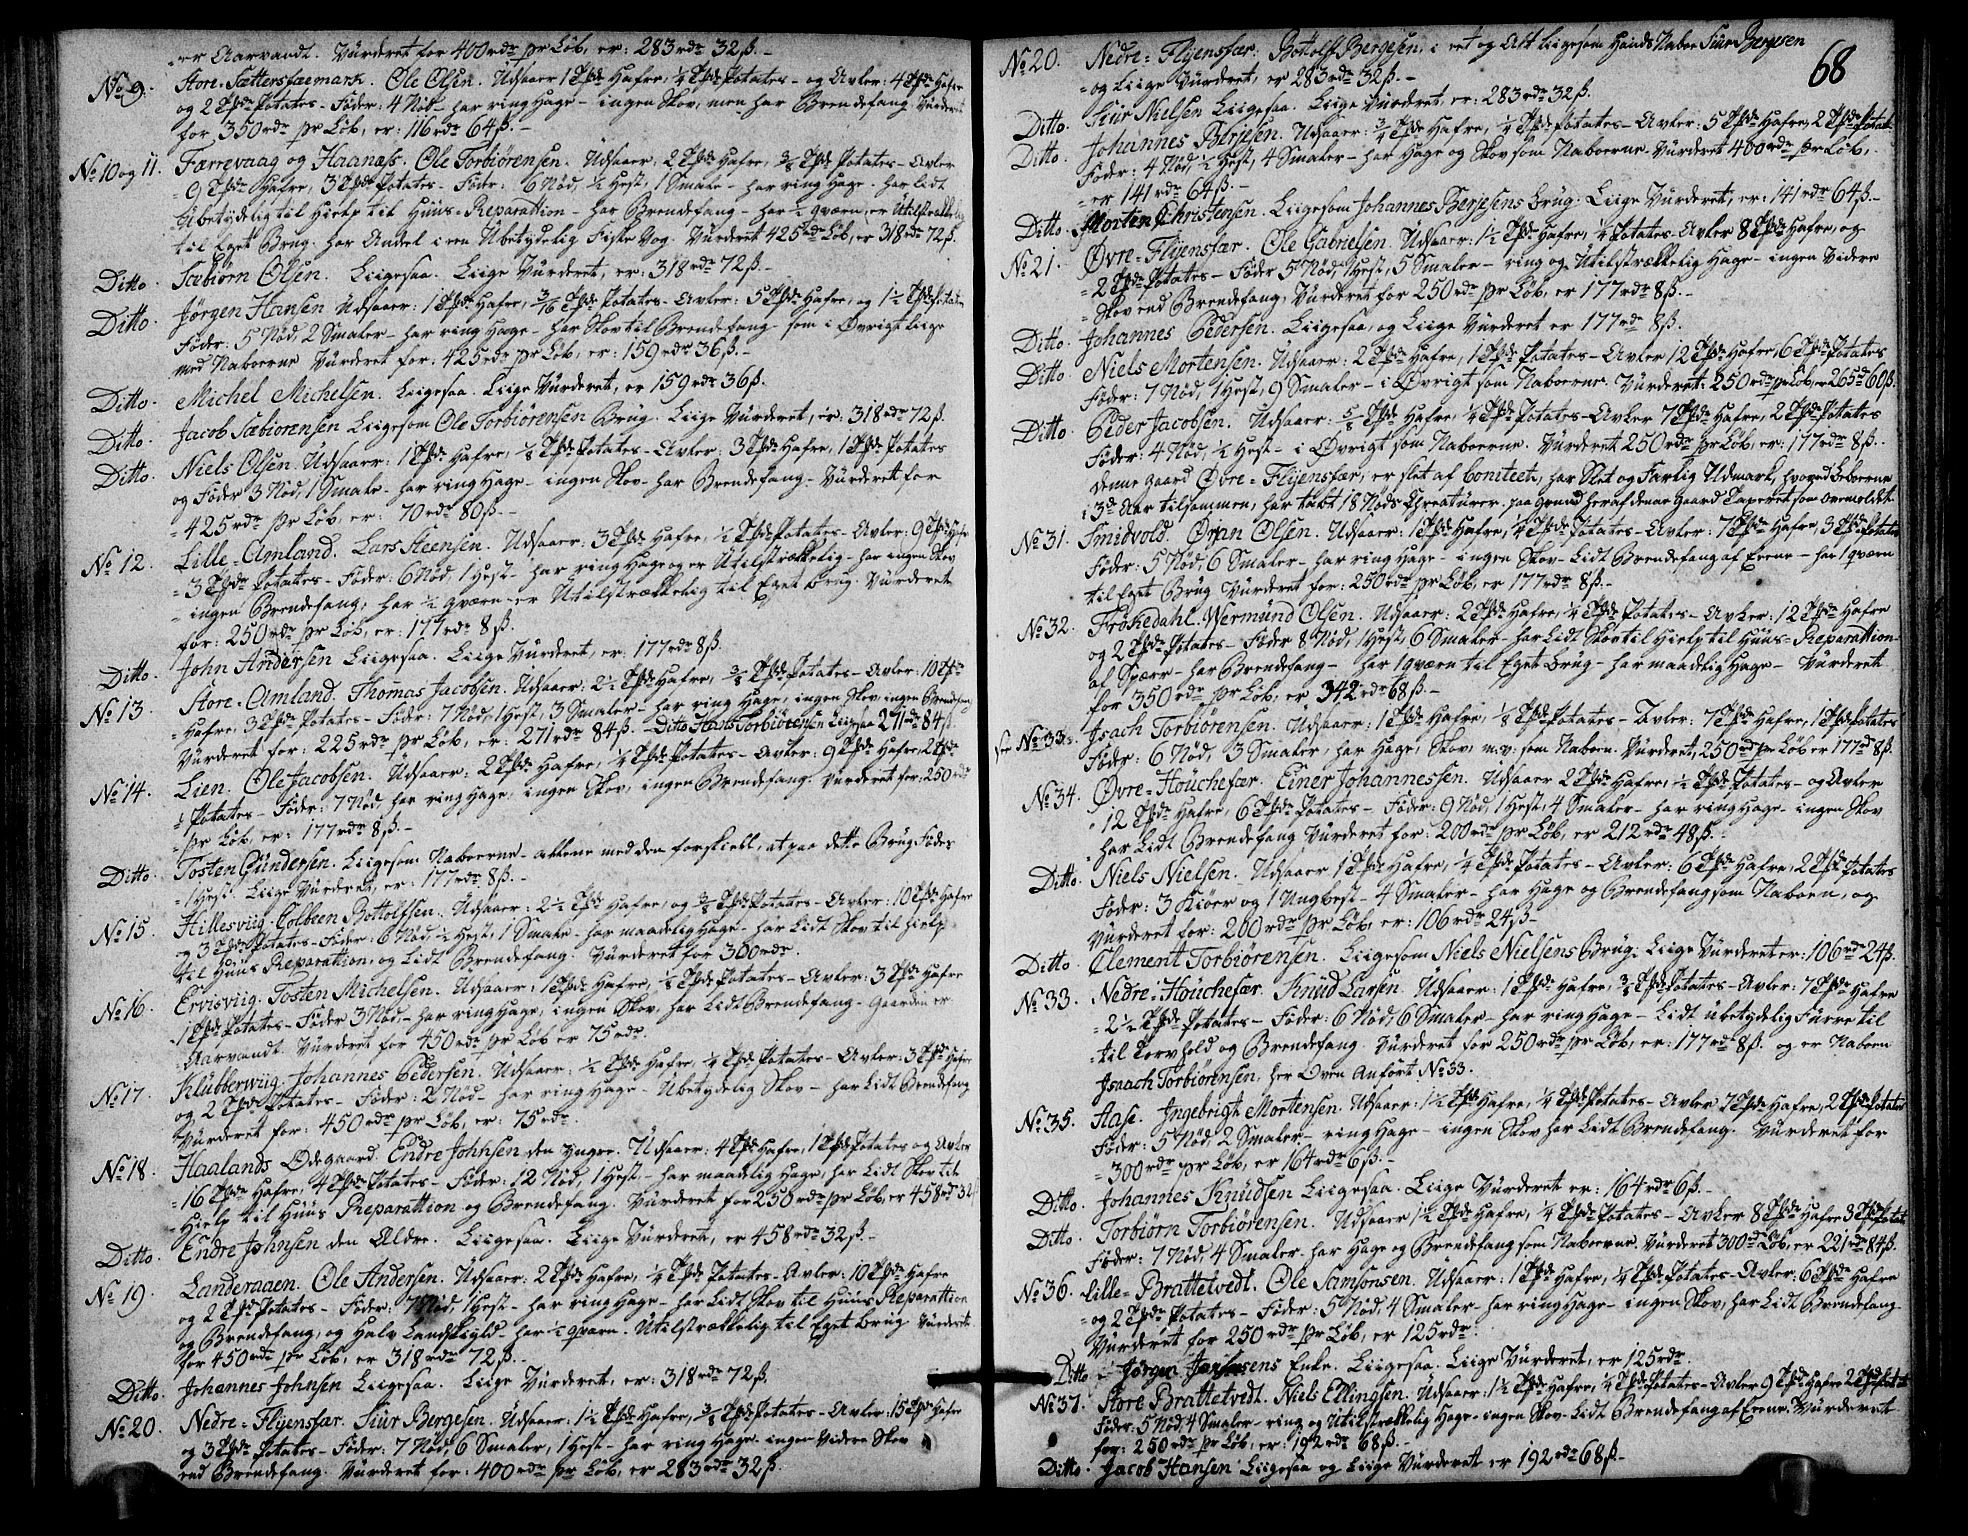 er Aarvandt. Vürderet for 400 rdr pr Løb, er: 283 rdr 32 ß.-
No 9. Store-Sættersfæemark. Ole Olsen. Udsaaer 1 Tde Hafre, 1/4 Tde Potates- og Avler: 4 Tde Hafre
og 2 Tde Potates- Føder: 4 Nød- har ring Hage- ingen Skov, men har Brendefang. Vürderet
for 350 rdr pr Løb, er: 116 rdr 64 ß.-
No 10 og 11. Færrevaag og Haanæss. Ole Torbiørensen. Udsaaer: 2 Tde Hafre, 3/8 Tde Potates- Avler
9 Tde Hafre, 3 Tde Potates- Føder: 6 Nød, 1/2 Hest, 1 Smale- har ring Hage- har lidt
Ubetydelig til Hielp til Huus-Reparattion- har Brendefang- har 1/2 qværn, er Utilstrækkelig
til Eget Brug. har Andel i een Ubetydelig Fiske Vog. Vürderet 425 rdr Løb, er 318 rdr 72 ß.
Ditto. Sæbiørn Olsen. Liigesaa. Liige Vürderet, er: 318 rdr 72 ß.-
Ditto. Jørgen Hansen Udsaaer: 1 Tde Hafre, 3/16 Tde Potates- Avler: 5 Tde Hafre, og 1 1/2 Tde Potates
Føder: 5 Nød, 2 Smaler- har ring Hage- har Skov til Brendefang som i Øvrigt liige
med Naboerne Vürderet for: 425 rdr pr Løb, er: 159 rdr 36 ß.-
Ditto. Michel Michelsen. Liigesaa. Liige Vürderet, er 159 rdr 36 ß.
Ditto. Jacob Sæbiorensen Liigesom Ole Torbiorensen Brüg. Liige Vürderet, er: 318 rdr 72 ß.
Ditto. Niels Olsen. Udsaaer: 1 Tde Hafre, 1/8 Tde Potates- Avler: 3 Tde Hafre, 1 Tde Potates
og Føder 3 Nød, 1 Smale- har ring Hage- ingen Skov- har Brendefang- Vürderet for
425 rdr pr Løb, er: 70 rdr 80 ß.-
No 12. Lille-Amland. Lars Steensen. Udsaaer: 3 Tde Hafre, 1/2 Tde Potates- Avler: 9 Tde Hafre
3 Tde Potates- Føder: 6 Nød, 1 Hest- har ring Hage og er Utilstrækkelig- har ingen Skov
ingen Brendefang, har 1/2 qværn- er Utilstrækkelig til Eget brug. Vürderet
for: 250 rdr pr Løb, er: 177 rdr 8 ß.
Ditto. John Andersen Liigesaa. Liige Vürderet, er: 177 rdr 8 ß.
No 13. Store-Amland. Thomas Jacobsen. Udsaaer: 2 1/2 Tde Hafre, 3/8 Tde Potates- Avler: 10 Tde
Hafre, 3 Tde Potates- Føder: 7 Nød, 1 Hest, 3 Smaler- har ring Hage, ingen Skov, ingen Brendefang
Vürderet for: 225 rdr pr Løb, er: 271 rdr 84 ß.- Ditto Hans Torbiörensen Liigesaa 271 rdr 84 ß.
No 14. Lien. Ole Jacobsen. Udsaaer: 2 Tde Hafre, 1/4 Tde Potates- Avler: 9 Tde Hafre, 2 Tde
Potates- Føder: 7 Nød, har ring Hage, ingen Skov, ingen Brendefang. Vurderet for: 250 rdr
pr Løb, er: 177 rdr 8 ß.-
Ditto. Tosten Gündersen. Liigesom Naboerne- allene med den forskiell, at paa dette Brüg Fødes
1 Hest. Liige Vürderet, er: 177 rdr 8 ß.-
No 15. Hillesviig. Colbeen Bottolfsen. Udsaaer: 2 1/2 Tde Hafre, og 3/8 Tde Potates- Avler: 10 Tde Hafre
og 3 Tde Potates- Føder: 6 Nød, 1/2 Hest, 1 Smale- har maadelig Hage- har Lidt Skov til hielp
til Huus Reparattion, og Lidt Brendefang. Vürderet for 300 rdr.
No 16. Ervisviig. Tosten Michelsen. Udsaaer: 1 Tde Hafre, 1/8 Tde Potates- Avler: 3 Tde Hafre
1 Tde Potates- Føder 3 Nød,- har ring Hage, ingen Skov, har Lidt Brendefang- Gaarden er
Aarvandt. Vürderet for 450 rdr pr Løb er 75 rdr.
No 17. Klübberviig. Johannes Pedersen. Udsaaer: 1/2 Tde Hafre, 1/4 Tde Potates- Avler: 3 Tde Hafre
og 2 Tde Potates- Føder: 2 Nød- har ring Hage- Ubetydelig Skov- har Lidt Brendefang
Vürderet for: 450 rdr pr Løb, er: 75 rdr.
No 18. Haalands Ødegaard. Endre Johnsen den yngre. Udsaaer: 4 Tde Hafre, 1 Tde Potates og Avler
16 Tde Hafre, 4 Tde Potates- Føder: 12 Nød, 1 Hest,- har maadelig Hage, har Lidt Skov til
Hielp til Huus Reparattion og Brendefang. Vürderet for 250 rdr pr Løb, er 458 rdr 32
Ditto. Endre Johnsen den Ældre. Liigesaa. Liige Vürderet, er 458 rdr 32 ß.-
No 19. Landeraaen. Ole Andersen. Udsaaer: 2 Tde Hafre, 1/4 Tde Potates- Avler: 10 Tde Hafre
og 2 Tde Potates- Føder: 7 Nød, 1 Hest- har ring Hage- har Lidt Skov til Huus Reparattion
og Brendefang, og Halv Landskyld- har 1/2 qværn. Utilstrækkelig til Eget brug Vürderet
for 450 rdr pr Løb, er 318 rdr 72 ß.-
Ditto. Johannes Johnsen Liigesaa. Liige Vürderet, er: 318 rdr 72 ß.
No 20. Nedre-Flyensfær. Siur Bergesen. Udsaaer: 1 1/2 Tde Hafre, 3/8 Tde Potates- Avler: 15 Tde Hafre
og 3 Tde Potates- Føder: 7 Nød, 6 Smaler, 1 Hest- har ring Hage- ingen Videre Skov
end Brendefang. Vürderet for: 400 rdr pr Løb, er 283 rdr 32 ß.
68
No 20. Nedre-Flyensfær. Bottolf Bergesen: i et og Alt Liigesom Hands Naboe Siur Bergesen
og Liige Vürderet, er 283 rdr 32 ß.-
Ditto. Siur Nielsen Liigesaa. Liige Vürderet, er: 283 rdr 32 ß.
Ditto. Johannes Børjesen. Udsaaer: 3/4 Tde Hafre, 1/4 Tde Potates- Avler: 5 Tde Hafre, 2 Tde Potates
Føder: 4 Nød, 1/2 Hest, 4 Smaler- har Hage og Skov som Naboerne. Vürderet 400 rdr pr Løb,
er 141 rdr 64 ß.-
Ditto. Morten Christensen. Liigesom Johannes Børjesens brüg. Liige Vürderet, er: 141 rdr 64 ß.-
No 21. Øvre-Flyensfær. Ole Gabrielsen. Udsaaer: 1 1/2 Tde Hafre, 1/4 Tde Potates- Avler 8 Tde Hafre, og
2 Tde Potates- Føder 5 Nød, 1 Hest, 5 Smaler- ring og Utilstrækkelig Hage- ingen Videre
Skov end Brendefang, Vürderet for 250 rdr pr Løb, er 177 rdr 8 ß.-
Ditto. Johannes Pedersen. Liigesaa, og Liige Vürderet er 177 rdr 8 ß.
Ditto. Niels Mortensen. Udsaaer: 2 Tde Hafre, 1 Tde Potates- Avler 12 Tde Hafre, 6 Tde Potates
Føder: 7 Nød, 1 Hest, 9 Smaler- i Øvrigt som Naboerne. Vürderet: 250 rdr pr Løb er 265 rdr 60 ß.
Ditto. Peder Jacobsen. Udsaaer: 5/8 Tde Hafre, 1/4 Tde Potates- Avler 7 Tde Hafre, 2 Tde Potates
Føder: 4 Nød, 1/2 Hest- i Øvrigt som Naboerne. Vürderet 250 rdr pr Løb, er: 177 rdr 8 ß.-
denne gaard Øvre-Flyensfær, er slat af Comiteet, har Slet og Farlig Udmark, hvored Beboerne
i 3de Aar tilsammen, har tabt 18 Nøds Chreaturer. paa grund heraf denne Gaard Taxeret som ovenmeldt.
No 31. Smidvold. Ørjan Olsen. Udsaaer: 1 Tde Hafre, 1/4 Tde Potates- Avler: 7 Tde Hafre, 3 Tde Potates
Føder: 5 Nød, 6 Smaler- har ring Hage- ingen Skov- Lidt Brendefang af Eene- har 1 qværn
til Eget Brüg Vürderet for: 250 rdr pr Løb, er 177 rdr 8 ß.-
No 32. Frøkedahl. Wermund Olsen. Udsaaer: 2 Tde Hafre, 1/4 Tde Potates- Avler: 12 Tde Hafre
og 2 Tde Potates- Føder 8 Nød, 1 Hest, 6 Smaler- har Lidt Skov til Hielp til Huus-Reparattion
af Spærr- har Brendefang- har 1 qværn til Eget Brüg- har maadelig Hage- Vürderet
for 350 rdr pr Løb, er 342 rdr 68 ß.-
No 33. Isach Torbiörensen. Udsaaer: 1 Tde Hafre, 1/8 Tde Potates- Avler: 7 Tde Hafre, 1 Tde Potates
Føder: 6 Nød, 3 Smaler, har Hage, Skov, m:v: som Naboen. Vürderet, 250 rd pr Løb er 177 rd 8 ß.
No 34. Øvre-Höuchefær. Einer Johannessen. Udsaaer 2 Tde Hafre, 1/2 Tde Potates- og Avler
12 Tde Hafre, 6 Tde Potates- Føder: 9 Nød, 1 Hest, 4 Smaler- har ring Hage- ingen Skov
har Lidt Brendefang Vürderet for: 200 rdr pr Løb, er 212 rdr 48 ß.-
Ditto. Niels Nielsen- Udsaaer 1 Tde Hafre, 1/4 Tde Potates- Avler: 6 Tde Hafre, 2 Tde Potates
Føder: 3 Kiöer og 1 Unghest- 4 Smaler- har Hage og Brendefang som Naboen, og
Vürderet for: 200 rdr pr Løb, er: 106 rdr 24 ß-
Ditto. Clement Torbiörensen. Liigesom Niels Nielsens Brüg. Liige Vürderet er: 106 rd 24 ß.
No 33. Nedre-Höuchefær. Knüd Larsen. Udsaaer: 1 Tde Hafre, 3/8 Tde Potates- Avler: 7 Tde Hafre
2 1/2 Tde Potates- Føder: 6 Nød, 6 Smaler- har ring Hage- Lidt Ubetydelig Fürre til
til Torvhold og Brendefang. Vürderet for 250 rdr pr Løb, er: 177 rdr 8 ß. og er Naboen
Isaach Torbiörensen, her Oven Anført No 33.
No 35. Aase. Ingebrigt Mortensen. Udsaaer: 1 1/2 Tde Hafre, 1/4 Tde Potates- Avler 7 Tde Hafre, 2 Tde Potates
Føder: 5 Nød 2 Smaler- ring Hage- ingen Skov har Lidt Brendefang. Vürderet for
300 rdr pr Løb, er 164 rdr 6 ß.-
Ditto. Johannes Knüdsen Liigesaa. Liige Vürderet er: 164 rdr 6 ß.-
Ditto. Torbiörn Torbiörensen. Udsaaer 1 1/2 Tde Hafre, 1/4 Tde Potates- Avler 8 Tde Hafre 3 Tde Potates
Føder: 7 Nød, 4 Smaler- har Hage og Brendefang som Naboerne. Vürderet 300 rd Løb, er 221 rd 84 ß.
No 36. Lille-Brattetvedt. Ole Samsonsen. Udsaaer: 1 Tde Hafre, 1/4 Tde Potates- Avler: 6 Tde Hafre
og 2 Tde Potates- Føder: 5 Nød, 4 Smaler- har ring Hage- ingen Skov, har Lidt Brendefang
Vürderet for 250 rdr pr Løb, er 125 rdr.
Ditto Jørgen Enke. Liigesaa. Liige Vürderet, er 125 rdr.
No 37. Store Brattetvedt. Niels Ellingsen. Udsaaer: 1 1/2 Tde Hafre, 1/4 Tde Potates- Avler 9 Tde Hafre 2 Tde Potates
Føder: 5 Nød 4 Smaler- ring og Utilstrækkelig Hage- ingen Skov- Lidt Brendefang af Eene. Vürderet
for: 250 rdr pr Løb, er: 192 rdr 68 ß.-
Ditto. Jacob Hansen Liigesaa og Liige Vürderet er 192 rdr 68 ß.-